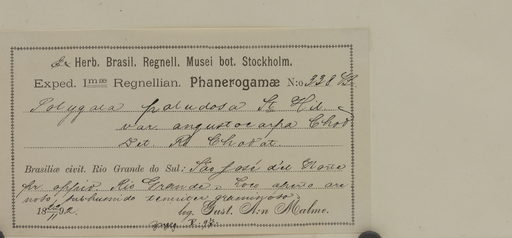 Ex Herb. Brasil. Regnell. Musei bot. Stockholm.
Exped. Imæ Regnellian. Phanerogamæ N:o 338 B.
Polygala paludosa St. Hil.
var. angustocarpa Chod
Det. R. Chodat.
Brasiliæ civit. Rio Grande do Sul: São José do Norte
pr. oppid. Rio Grande, loco aprico are
noso, subhumido graminoso.
18 92. leg. Gust. A:n Malme.